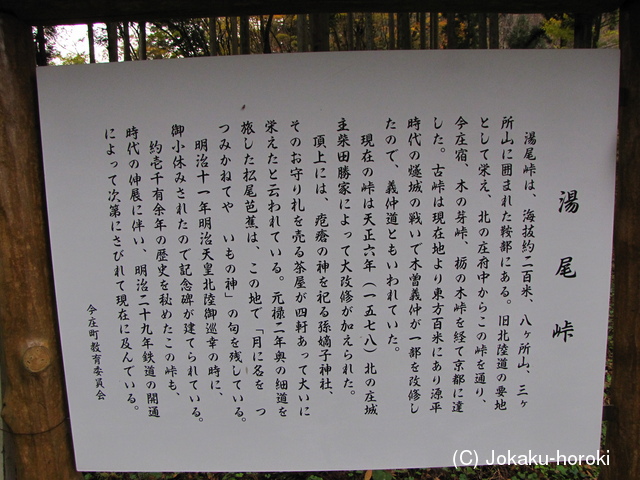 湯尾峠
湯尾峠は、海抜約二百米、八ヶ所山、三ヶ
所山に囲まれた鞍部にある。旧北陸道の要地
として栄え、北の庄府中からこの峠を通り、
今庄宿、木の芽峠、栃の木峠を経て京都に達
した。古峠は現在地より東方百米にあり源平
時代の燧城の戦いで木曽義仲が一部を改修し
たので、義仲道ともいわれていた。
現在の峠は天正六年(一五七八)北の庄城
主柴田勝家によって大改修が加えられた。
頂上には、疱瘡の神を祀る孫嫡子神社、
そのお守り札を売る茶屋が四軒あって大いに
栄えたと云われている。元禄二年奥の細道を
旅した松尾芭蕉は、この地で「月に名を つ
つみかねてや いもの神」の句を残している。
明治十一年明治天皇北陸御巡幸の時に、
御小休みされたので記念碑が建てられている。
約壱千有余年の歴史を秘めたこの峠も、
時代の伸展に伴い、明治二十九年鉄道の開通
によって次第にさびれて現在に及んでいる。
今庄町教育委員会
(C) Jokaku-horoki